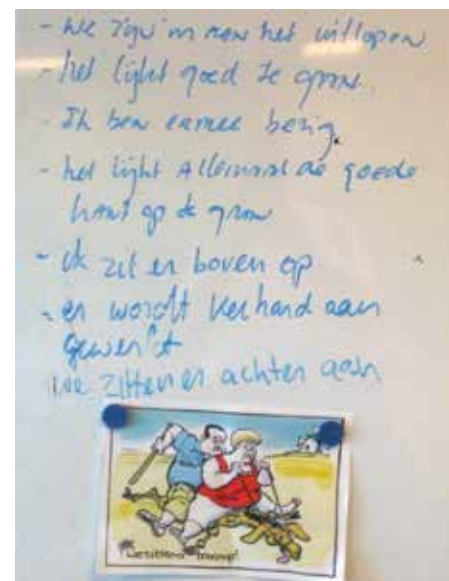 - We zijn 'm aan het uitlopen
- het lijkt goed te gaan.
- Ik ben ermee bezig.
- het lijkt Allemaal de goede
kant op te gaan
- ik zit er boven op
- er wordt keihard aan
gewerkt
we zitten er achter aan